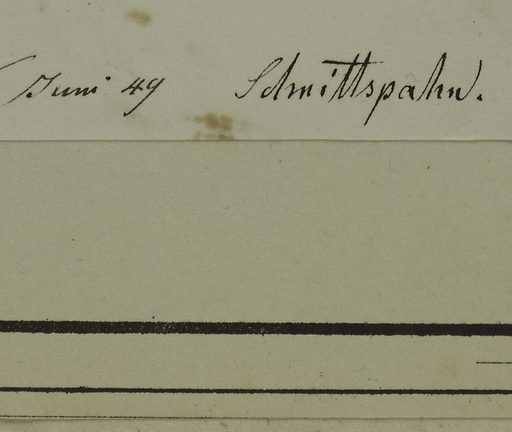 Juni 49 Schnittspahn.